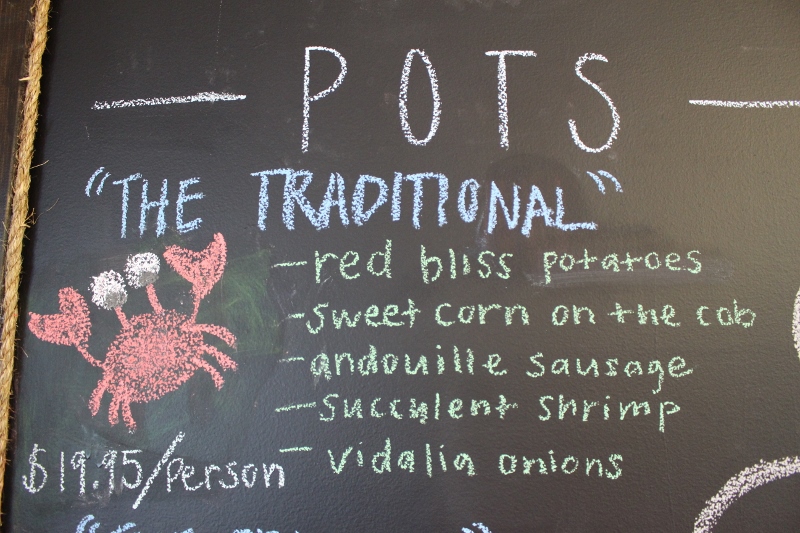 POTS
"THE TRADITIONAL"
-red bliss potatoes
-sweet corn on the cob
-andouille sausage
-succulent shrimp
- vidalia onions
$19.95/person